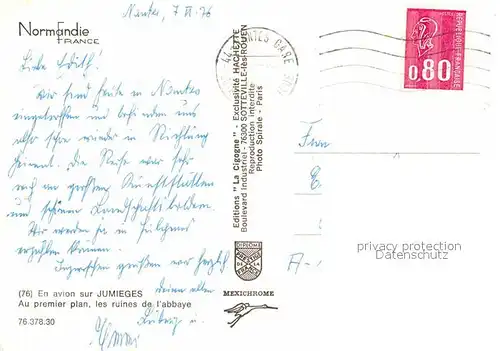 Nantes, 7 VI. 76
Normandie
FRANCE
Liebe Edith!
Wir sind heute in Nantes
eingetroffen und befinden uns
also schon wieder in Richtung
Heimat. Die Reise war sehr
reich an großen Kunststätten
und schönen Landschaftsbildern.
Wir werden ja in
erzählen können.
Inzwischen grüßen wir herzlich
(76) En avion sur JUMIEGES
Au premier plan, les ruines de l'abbaye
76.378.30
Editions "La Cigogne" - Exclusivité HACHETTE
Boulevard Industriel - 76300 SOTTEVILLE-lès-ROUEN
Reproduction interdite
Photo Spirale - Paris
DIPLOME
PRESTIGE
DE LA
FRANCE
MEXICHROME
44 NANTES GARE
REPUBLIQUE FRANCAISE
0,80
Frau
privacy protection
Datenschutz
A-